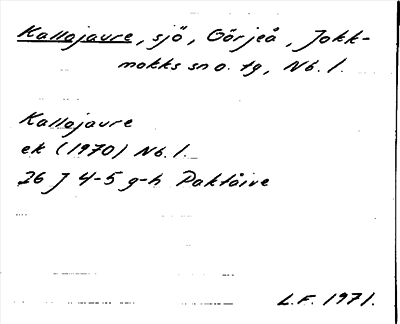 Kallojaure, sjö, Görjeå, Jokk-
mokks sn o. tg, Nb. l.
Kallojaure
ek (1970) Nb. l.
26 J 4-5 g-h Paktåive
L.F. 1971.